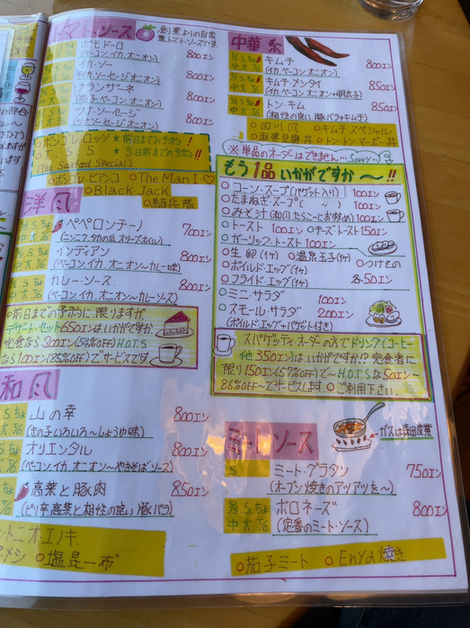 トマトソース
創業よりの自家製トマトソースです
ポモドーロ 800エン
(ベーコン、イカ、オニオン)
イカ・ソー 800エン
(イカ、ソーセージ、オニオン)
ナランザーネ 800エン
(茄子、ベーコン、オニオン)
ソーセージ 800エン
(ソーセージ、オニオン)
ボンゴレ・ロッソ ★前日までの予約!
★3日前までの予約!!
(The Seafood Special)
ボンゴレ・ビアンコ
The Man!
Black Jack
洋風
ペペロンチーノ 700エン
(ニンニク、タカの爪、オリーブオイル)
インディアン 800エン
(ベーコン、イカ、オニオン~カレー味)
カレー・ソース 800エン
(ベーコン、イカ、オニオン~カレーソース)
前日までの予約に限りますが
デザート・セット650エンはいかがですか
完食なら300エン(54%OFF) H.O.T.S
なら100エン(85%OFF)でサービスです
和風
山の幸 800エン
(きの子いろいろ~しょうゆ味)
オリエンタル 800エン
(ベーコン、イカ、オニオン~やきそばソース)
高菜と豚肉 850エン
(ピリ辛高菜と相性の良い豚バラ)
塩昆布
中華系
キムチ 800エン
(イカ、ベーコン、オニオン)
キムチ・メンタイ 850エン
(イカ、ベーコン、オニオン+明太子)
トン・キム 850エン
(相性の良い豚バラ+キムチ)
四川風
キムチ・スペシャル
麻婆豆腐丼
トントンマーボー丼
※単品のオーダーはできません… Sorry
もう1品いかがですか~!!
コーン・スープ(バゲット入り) 100エン
たまねぎ・スープ( 〃 ) 100エン
みそ汁(和風たらこにお勧め) 100エン
トースト 100エン
チーズ・トースト 150エン
ガーリック・トースト 100エン
生卵(1ケ)
温泉玉子(1ケ)
つけもの
ボイルド・エッグ(1ケ)
フライド・エッグ(1ケ) 各50エン
ミニ・サラダ 100エン
スモール・サラダ 200エン
(ボイルド・エッグ+バゲット付き)
スパゲッティオーダーの方でドリンク(コーヒー
他350エン)はいかがですか!? 完食者に
限り150エン(57%OFF)~H.O.T.Sなら50エン~
86%OFF~でサービスします ご利用下さい。
ミートソース
ミート・グラタン 750エン
(オーブン焼きのアツアツを~)
ボロネーズ 800エン
(定番のミート・ソース)
茄子ミート
Enya焼き